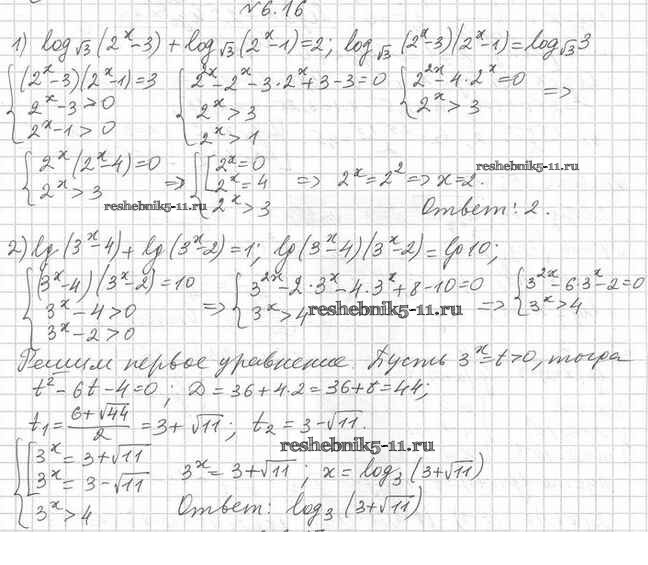 №6.16
1) log√3 (2ˣ-3) + log√3 (2ˣ-1)=2; log√3 (2ˣ-3)(2ˣ-1)=log√3 3
{ (2ˣ-3)(2ˣ-1)=3 { 2²ˣ-2ˣ-3·2ˣ+3-3=0 { 2²ˣ-4·2ˣ=0
2ˣ-3>0 2ˣ>3 2ˣ>3 =>
2ˣ-1>0 2ˣ>1
{ 2ˣ(2ˣ-4)=0 => { [ 2ˣ=0 => 2ˣ=2² => x=2.
2ˣ>3 2ˣ=4
2ˣ>3
reshebnik5-11.ru
reshebnik5-11.ru
Ответ: 2.
2) lg(3ˣ-4)+lg(3ˣ-2)=1; lg(3ˣ-4)(3ˣ-2)=lg10;
{ (3ˣ-4)(3ˣ-2)=10 => { 3²ˣ-2·3ˣ-4·3ˣ+8-10=0 => { 3²ˣ-6·3ˣ-2=0
3ˣ-4>0 3ˣ>4 3ˣ>4
3ˣ-2>0
reshebnik5-11.ru
Решим первое уравнение. Пусть 3ˣ=t>0, тогда
t²-6t-4=0; D=36+4·2=36+8=44;
t₁=(6+√44)/2=3+√11; t₂=3-√11.
reshebnik5-11.ru
{ [ 3ˣ=3+√11 3ˣ=3+√11; x=log₃(3+√11)
3ˣ=3-√11
3ˣ>4 Ответ: log₃(3+√11)